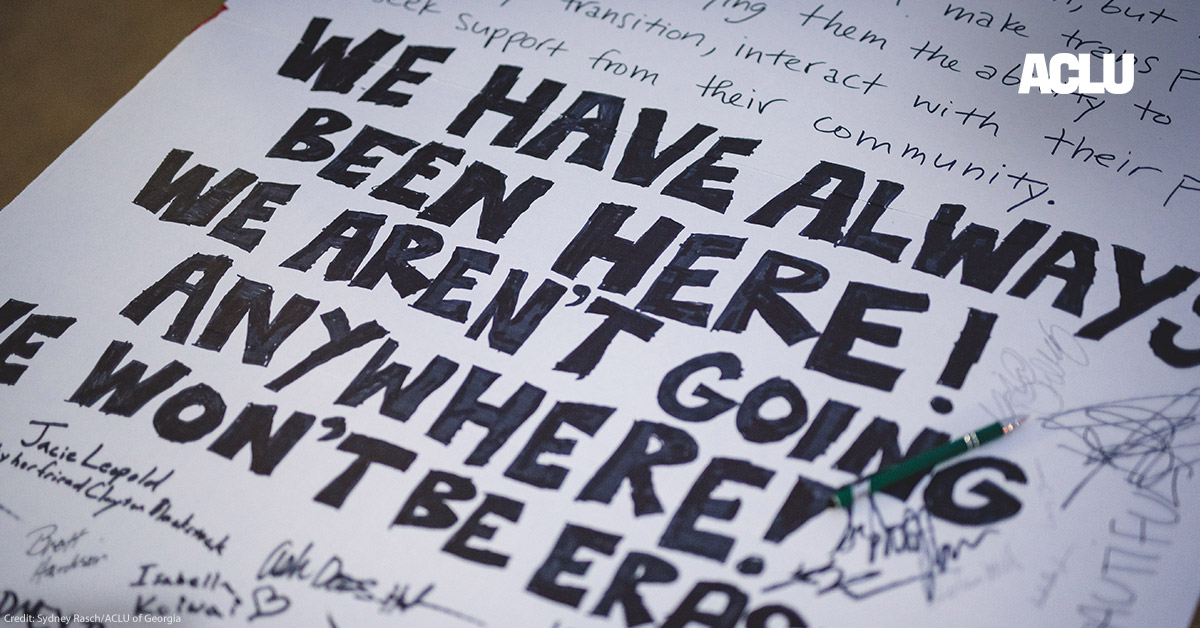 but
ying them the ability to
make trans
transition, interact with their
seek support from their community.
ACLU
WE HAVE ALWAYS
BEEN HERE!
WE AREN'T GOING
ANYWHERE!
WE WON'T BE ERAS
Jacie Leopold
Brett
Isabella
AUTIFUL
Credit: Sydney Rasch/ACLU of Georgia